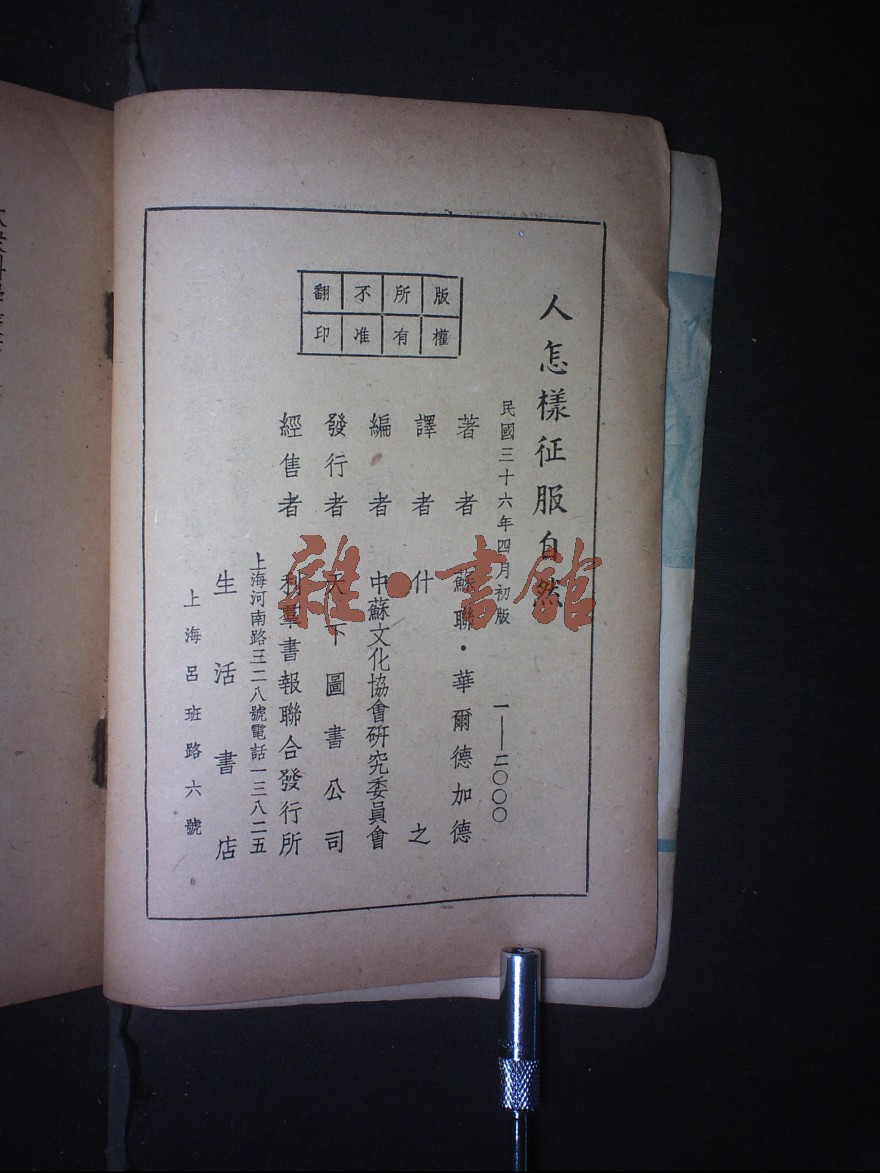 人怎樣征服自然
民國三十六年四月初版 一——二〇〇〇
著者 蘇聯・華爾德加德
譯者 什之
編者 中蘇文化協會研究委員會
發行者 天下圖書公司
經售者 利羣書報聯合發行所
上海河南路三二八號電話一三八二五
生活書店
上海呂班路六號
版權所有不准翻印
雜・書館